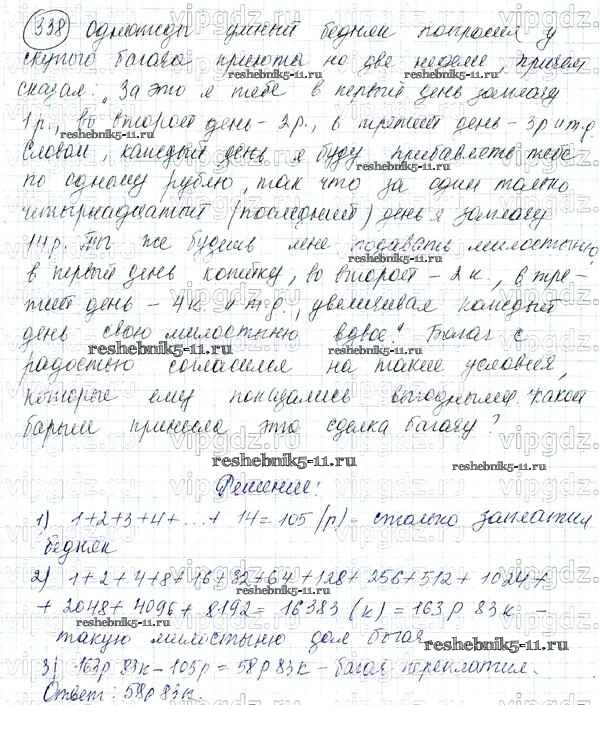 338) Однажды умный бедняк попросил у
скупого богача приюта на две недели, причем
сказал: „За это я тебе в первый день заплачу
1 р., во второй день - 2 р., в третий день - 3 р и т.д.
Словом, каждый день я буду прибавлять тебе
по одному рублю, так что за один только
четырнадцатый (последний) день я заплачу
14 р. Ты же будешь мне подавать милостыню:
в первый день копейку, во второй - 2 к., в тре-
тий день - 4 к. и т.д., увеличивая каждый
день свою милостыню вдвое." Богач с
радостью согласился на такие условия,
которые ему показались выгодными. Какой
барыш принесла эта сделка богачу?
Решение:
1) 1+2+3+4+...+14=105 (р) - столько заплатил
бедняк
2) 1+2+4+8+16+32+64+128+256+512+1024+
+2048+4096+8192=16383 (к)=163 р 83 к -
такую милостыню дал богач
3) 163 р 83 к - 105 р = 58 р 83 к - богач переплатил.
Ответ: 58 р 83 к.
reshebnik5-11.ru
vipgdz.ru